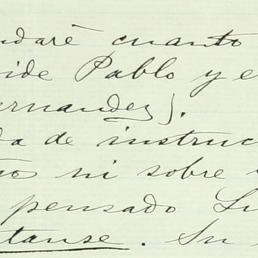 ndaré cuanto
ide Pablo y e
ernandez).
da de instruc
ni sobre
pensado Lu
tanse. Su